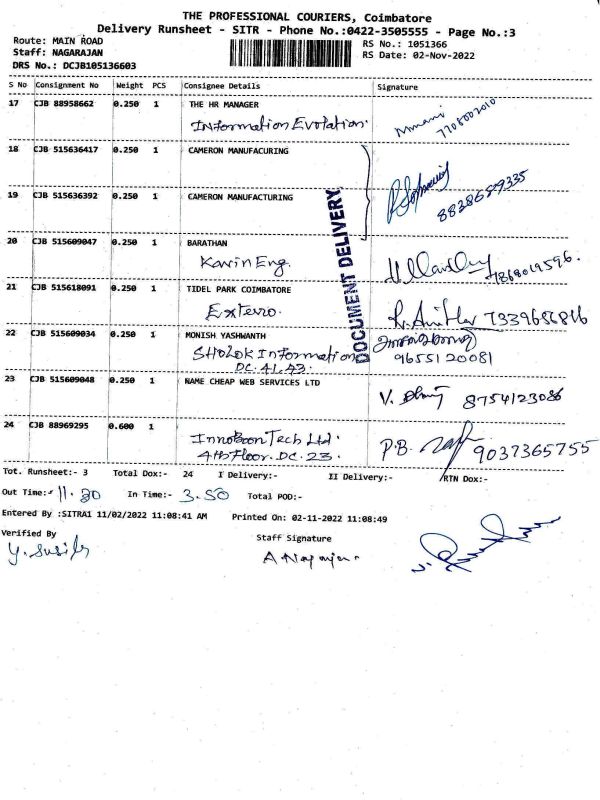 THE PROFESSIONAL COURIERS, Coimbatore
Delivery Runsheet - SITR - Phone No.:0422-3505555 - Page No.:3
Route: MAIN ROAD RS No.: 1051366
Staff: NAGARAJAN RS Date: 02-Nov-2022
DRS No.: DCJB105136603
S No Consignment No Weight PCS Consignee Details Signature
17 CJB 88958662 0.250 1 THE HR MANAGER
Information Evolation. 7708002010
18 CJB 515636417 0.250 1 CAMERON MANUFACURING
19 CJB 515636392 0.250 1 CAMERON MANUFACTURING 8838689335
DOCUMENT DELIVERY
20 CJB 515609047 0.250 1 BARATHAN
Kavin Eng. 7868019596.
21 CJB 515618091 0.250 1 TIDEL PARK COIMBATORE
Exterro. 7339656816
22 CJB 515609034 0.250 1 MONISH YASHWANTH
SHOLOK Information 9655120081
DC.41,43.
23 CJB 515609048 0.250 1 NAME CHEAP WEB SERVICES LTD
8754123086
24 CJB 88969295 0.600 1
InnoBoon Tech Ltd. P.B. 9037365755
4th Floor. DC. 23.
Tot. Runsheet:- 3 Total Dox:- 24 I Delivery:- II Delivery:- /RTN Dox:-
Out Time:- 11.20 In Time:- 3.50 Total POD:-
Entered By :SITRA1 11/02/2022 11:08:41 AM Printed On: 02-11-2022 11:08:49
Verified By Staff Signature